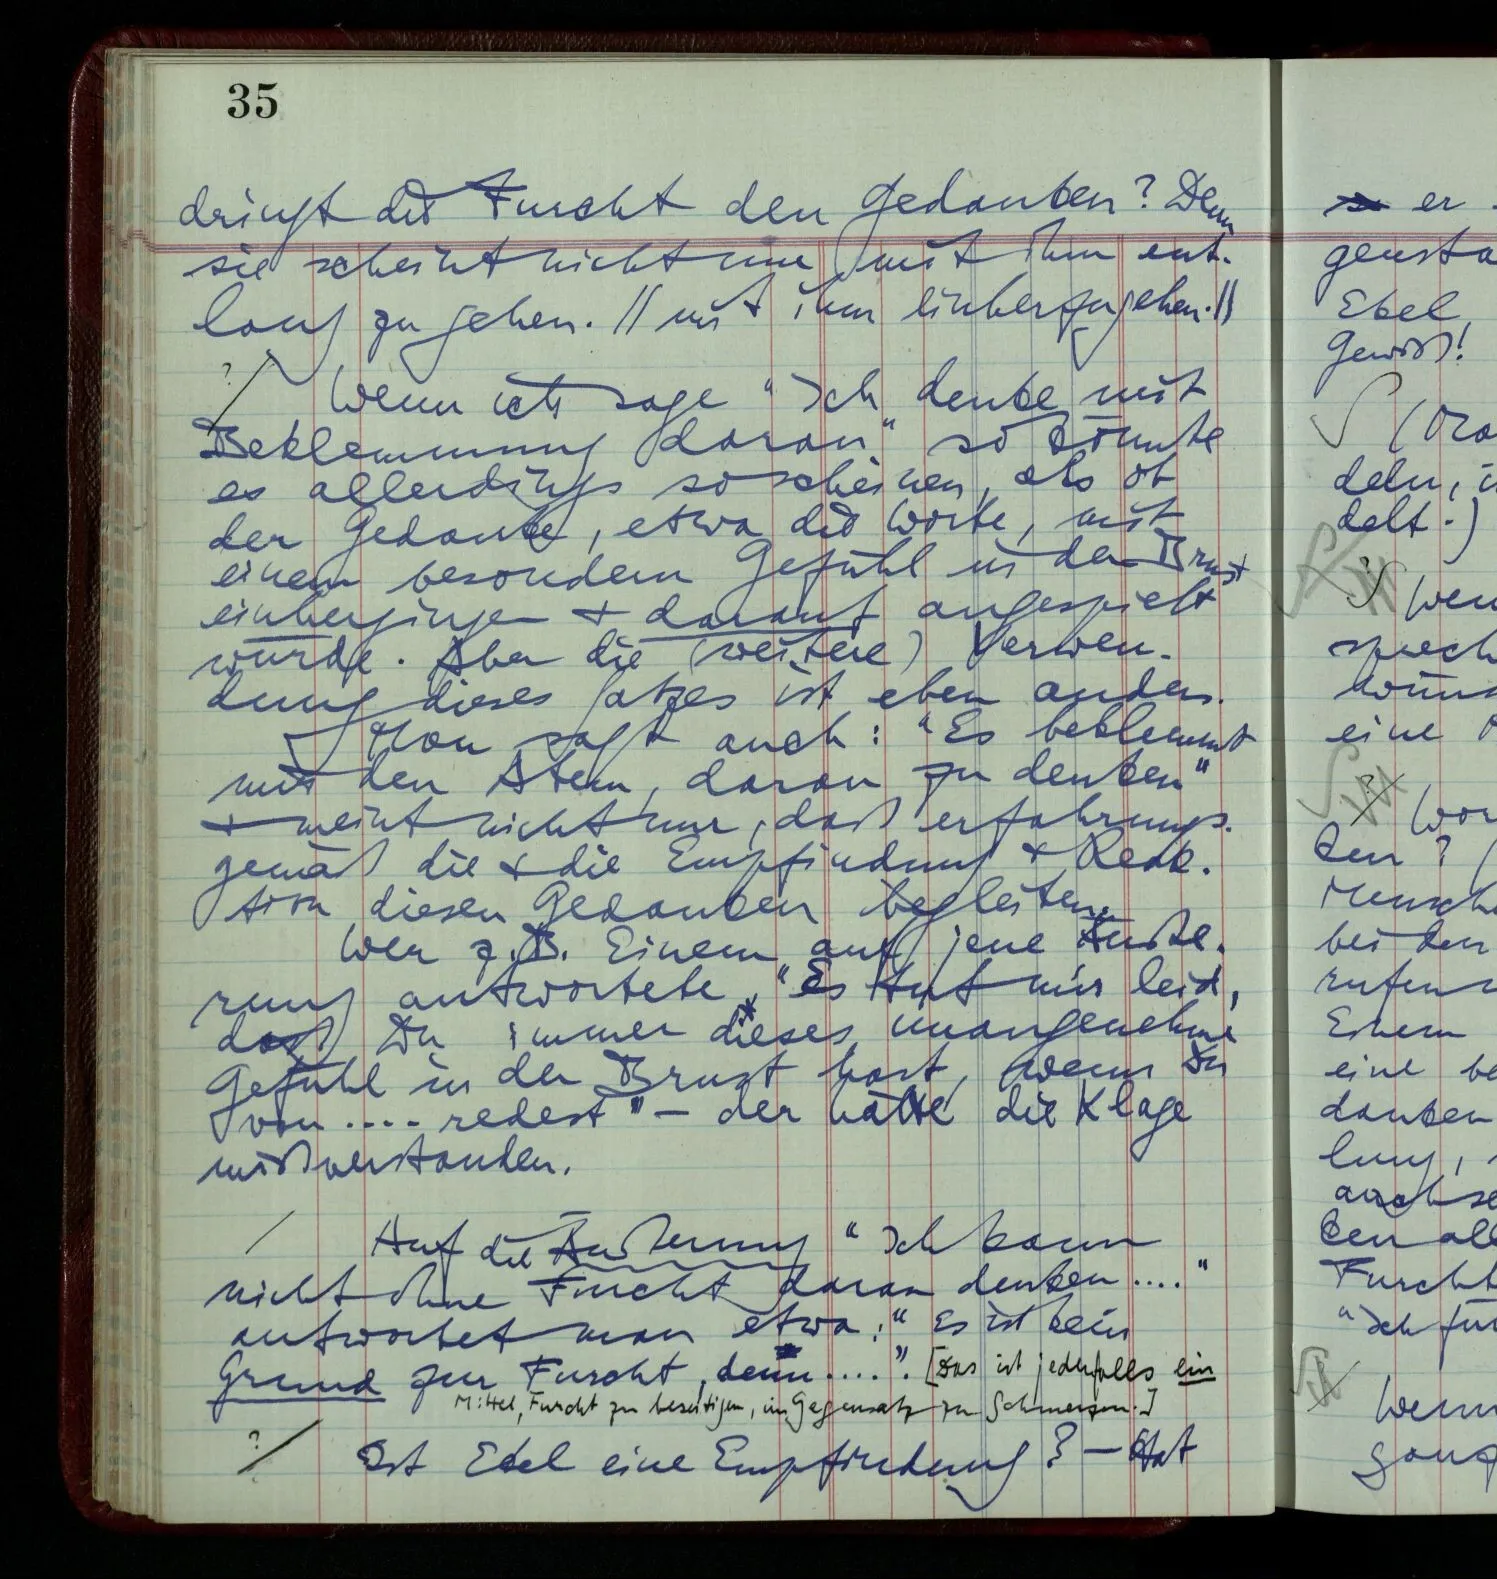 35
dringt die Furcht den Gedanken? Denn
sie scheint nicht nur mit ihm ent-
lang zu gehen. // mit ihm einherzugehen. //
? / Wenn ich sage "Ich denke mit
Beklemmung daran" so könnte
es allerdings so scheinen, als ob
der Gedanke, etwa die Worte, mit
einem besondern Gefühl in der Brust
einhergingen + darauf angespielt
würde. Aber die (weitere) Verwen-
dung dieses Satzes ist eben anders.
Man sagt auch: "Es beklemmt
mir den Atem, daran zu denken"
+ meint nicht nur, daß erfahrungs-
gemäß die + die Empfindung + Reak-
tion diesen Gedanken begleiten.
Wer z.B. Einem auf jene Äuße-
rung antwortete, "Es tut mir leid,
daß Du immer dieses unangenehme
Gefühl in der Brust hast, wenn Du
von .... redest" – der hätte die Klage
mißverstanden.
/ Auf die Äußerung "Ich kann
nicht ohne Furcht daran denken ...."
antwortet man etwa: "Es ist kein
Grund zur Furcht, denn ....". [Das ist jedenfalls ein
Mittel, Furcht zu beseitigen, im Gegensatz zu Schmerzen.]
? / Ist Ekel eine Empfindung? – Hat
er
gensta
Ekel
Gewiß!
deln, i
delt.)
? Wen
sprech
eine
Wor
ken? (
Mensch
bei den
rufen
Einem
eine be
danken
lung,
ken all
Furcht
"Ich für
Wenn
ganz